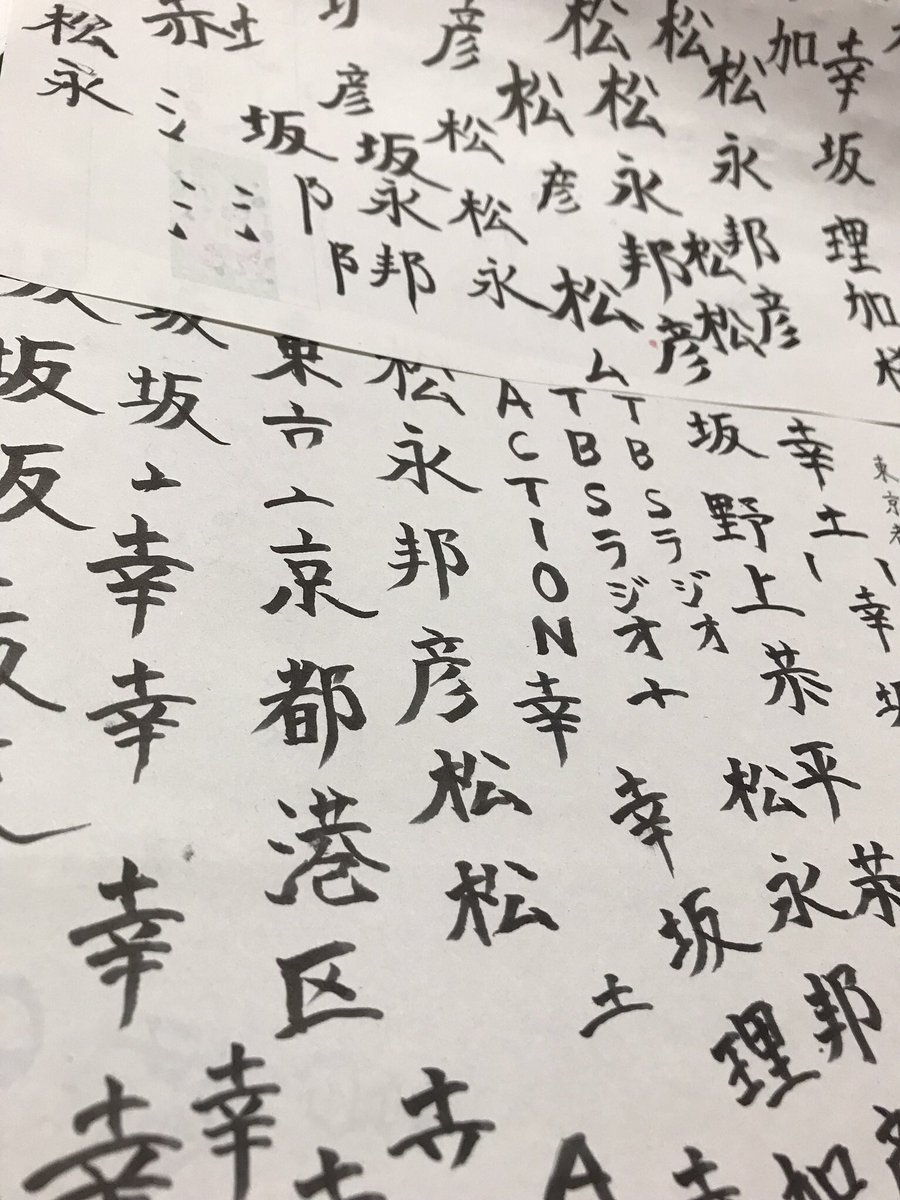 幸坂理加
加
松松永邦彦
松松
松松永邦彦
松彦松ム
彦松松永
彦坂永邦
坂阝阝
赤土
氵氵氵
松永
東京
幸坂
幸土
坂野上恭平
恭
TBSラジオ
TBSラジオ
幸坂理加
松永邦
ACTION幸
土
A
松永邦彦松松
東京都港区
坂幸幸幸幸
幸
坂坂